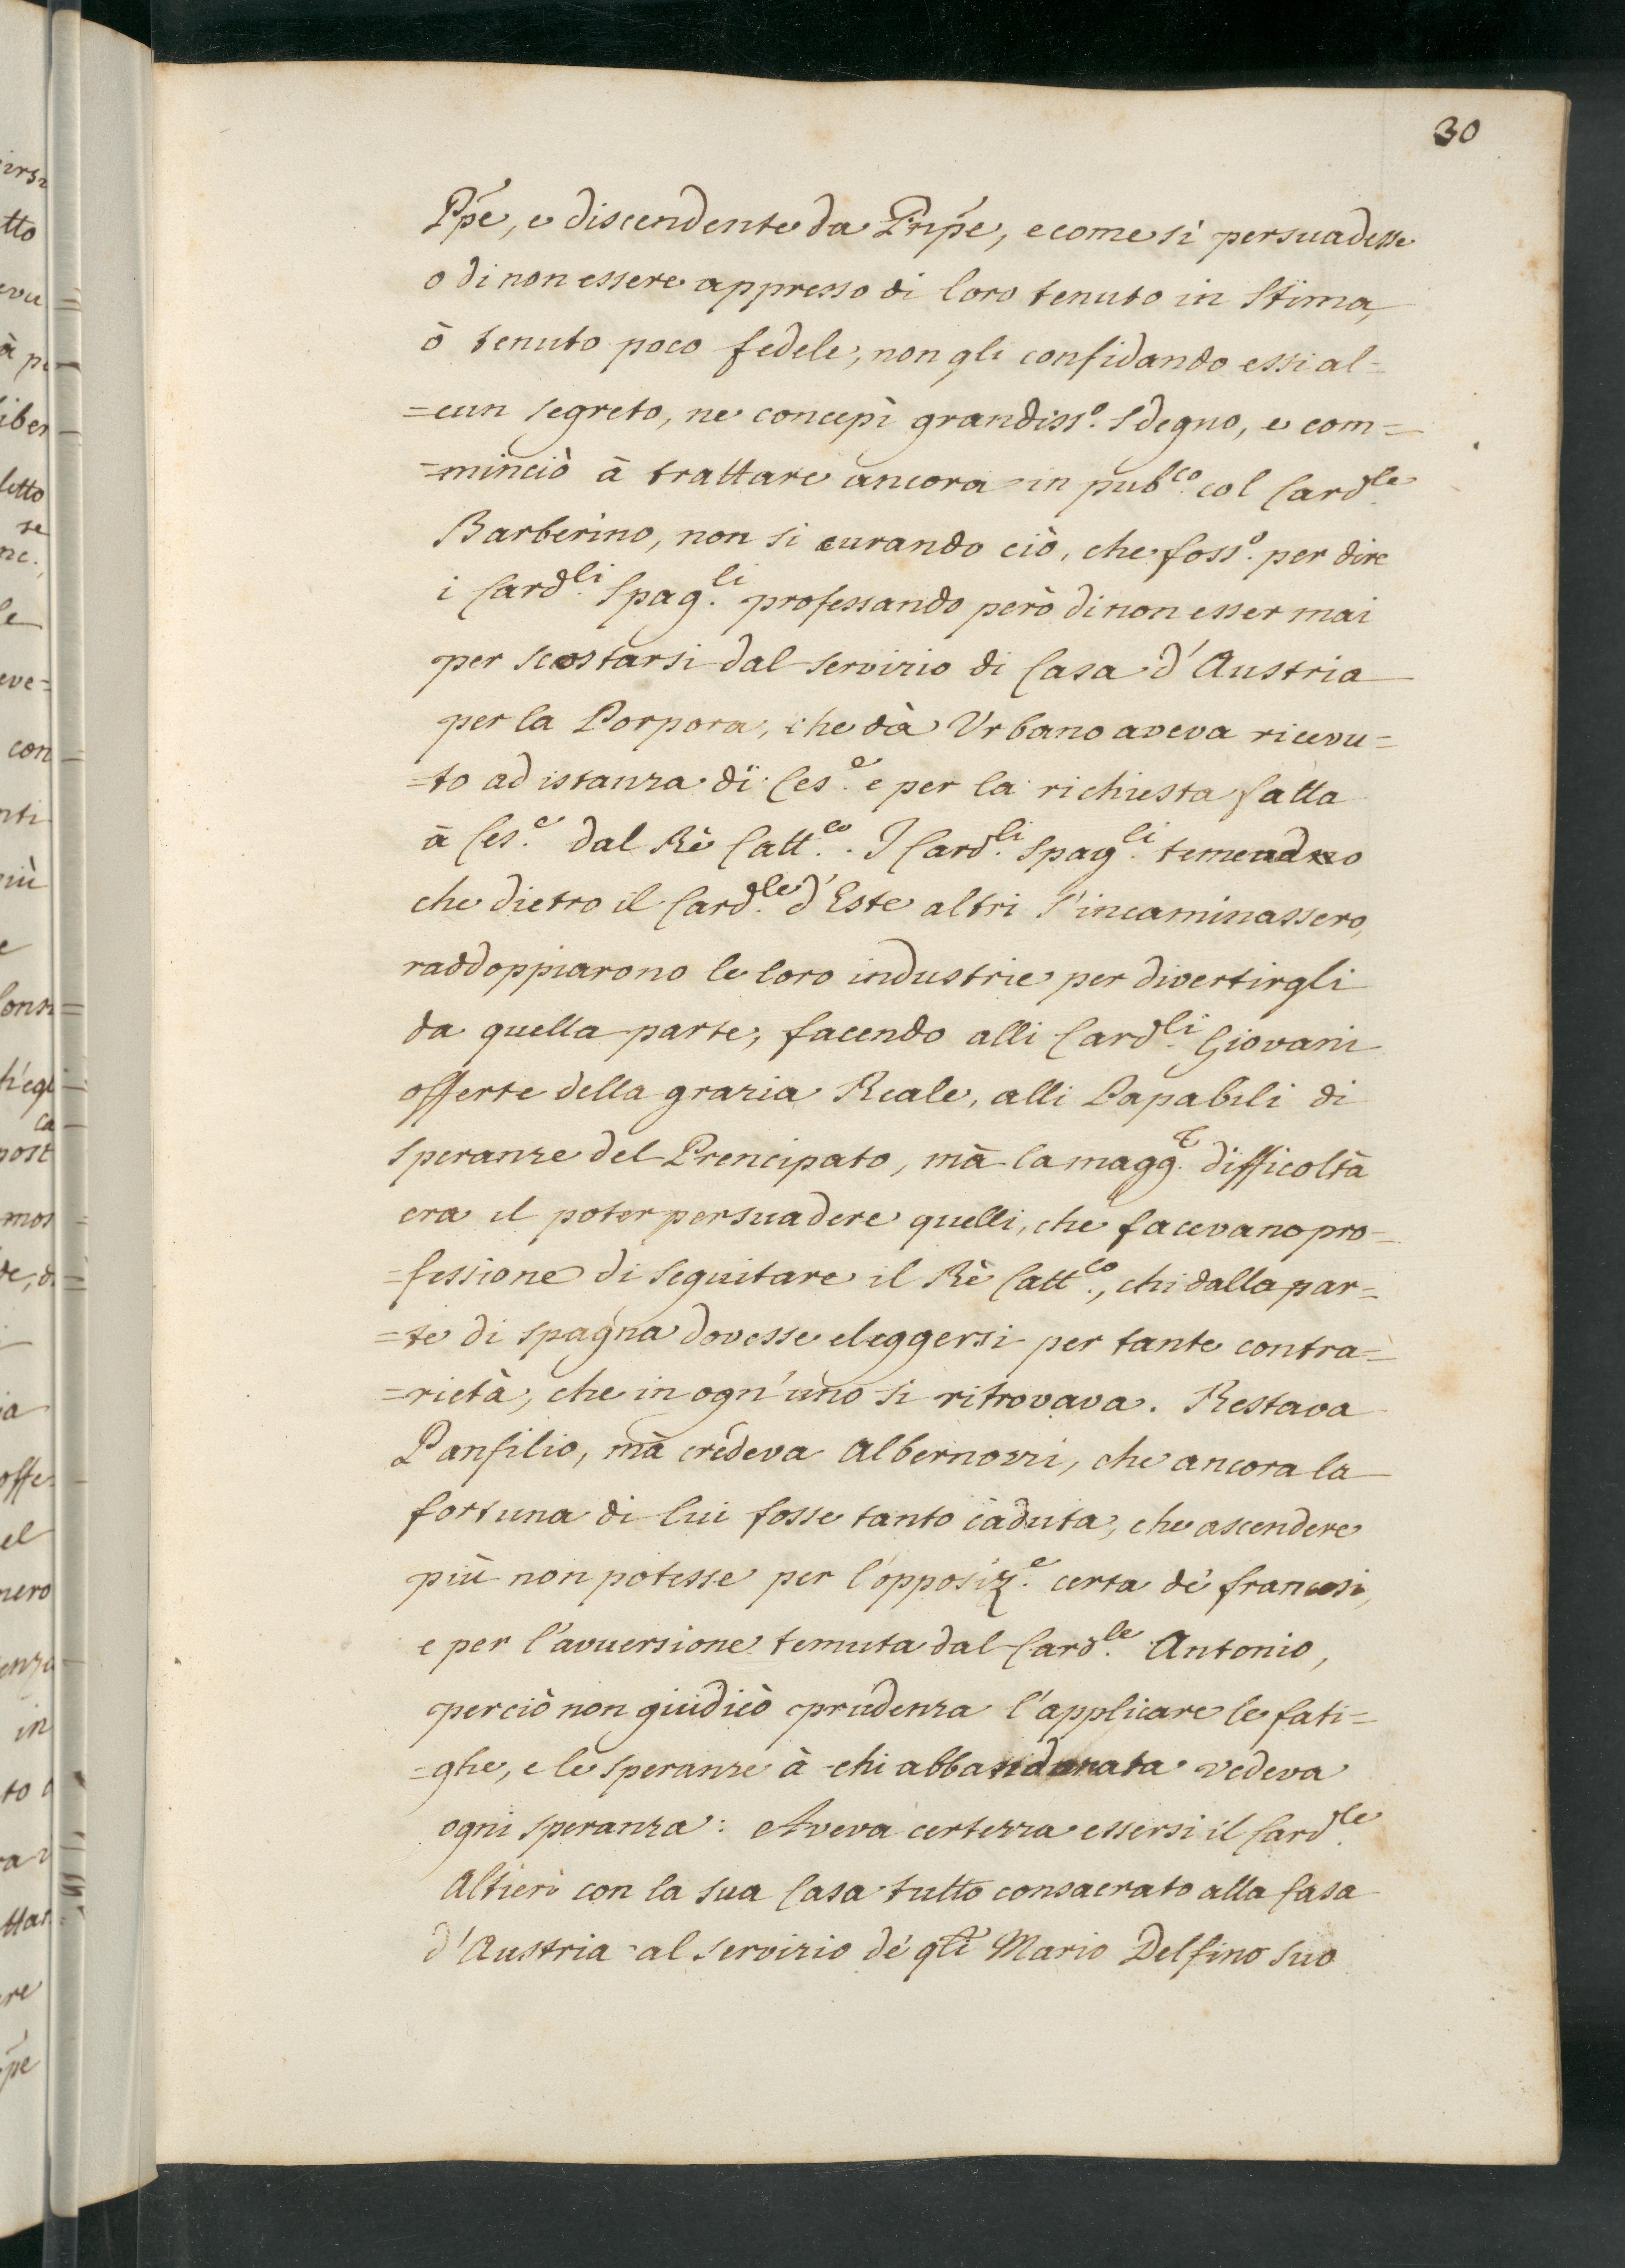 30
Ppe, e discendente da Pnpe, e come si persuadesse
o di non essere appresso di loro tenuto in stima,
ò tenuto poco fedele, non gli confidando essi al=
=cun segreto, ne concepì grandiss.º sdegno, e com=
=minciò à trattare ancora in pub.co col Card.le
Barberino, non si curando ciò, che foss.º per dire
i Card.li Spag.li professando però di non esser mai
per scostarsi dal servizio di Casa d'Austria
per la Porpora, che dà Urbano aveva ricevu=
=to ad istanza di Ces.e e per la richiesta fatta
à Ces.e dal Rè Catt.co. I Card.li Spag.li temendo
che dietro il Card.le d'Este altri s'incaminassero,
raddoppiarono le loro industrie per divertirgli
da quella parte, facendo alli Card.li Giovani
offerte della grazia Reale, alli Papabili di
speranze del Prencipato, mà la magg.r difficoltà
era il poter persuadere quelli, che facevano pro=
=fessione di seguitare il Rè Catt.co, chi dalla par=
=te di Spagna dovesse eleggersi per tante contra=
=rietà, che in ogn'uno si ritrovava. Restava
Panfilio, mà credeva Albernozzi, che ancora la
fortuna di lui fosse tanto caduta, che ascendere
più non potesse per l'opposiz.e certa de' francesi,
e per l'avversione temuta dal Card.le Antonio,
perciò non giudicò prudenza l'applicare le fati=
=ghe, e le speranze à chi abbandonata vedeva
ogni speranza: Aveva certezza essersi il Card.le
Altieri con la sua Casa tutto consacrato alla Casa
d'Austria al servizio de' qli Mario Delfino suo
irsi
tto
evu
à pe
liber
letto
se
ne.
le
eve=
con
nti
più
e
ca
post
mos
a
offe
el
nero
enza
in
to
ttar
re
pe